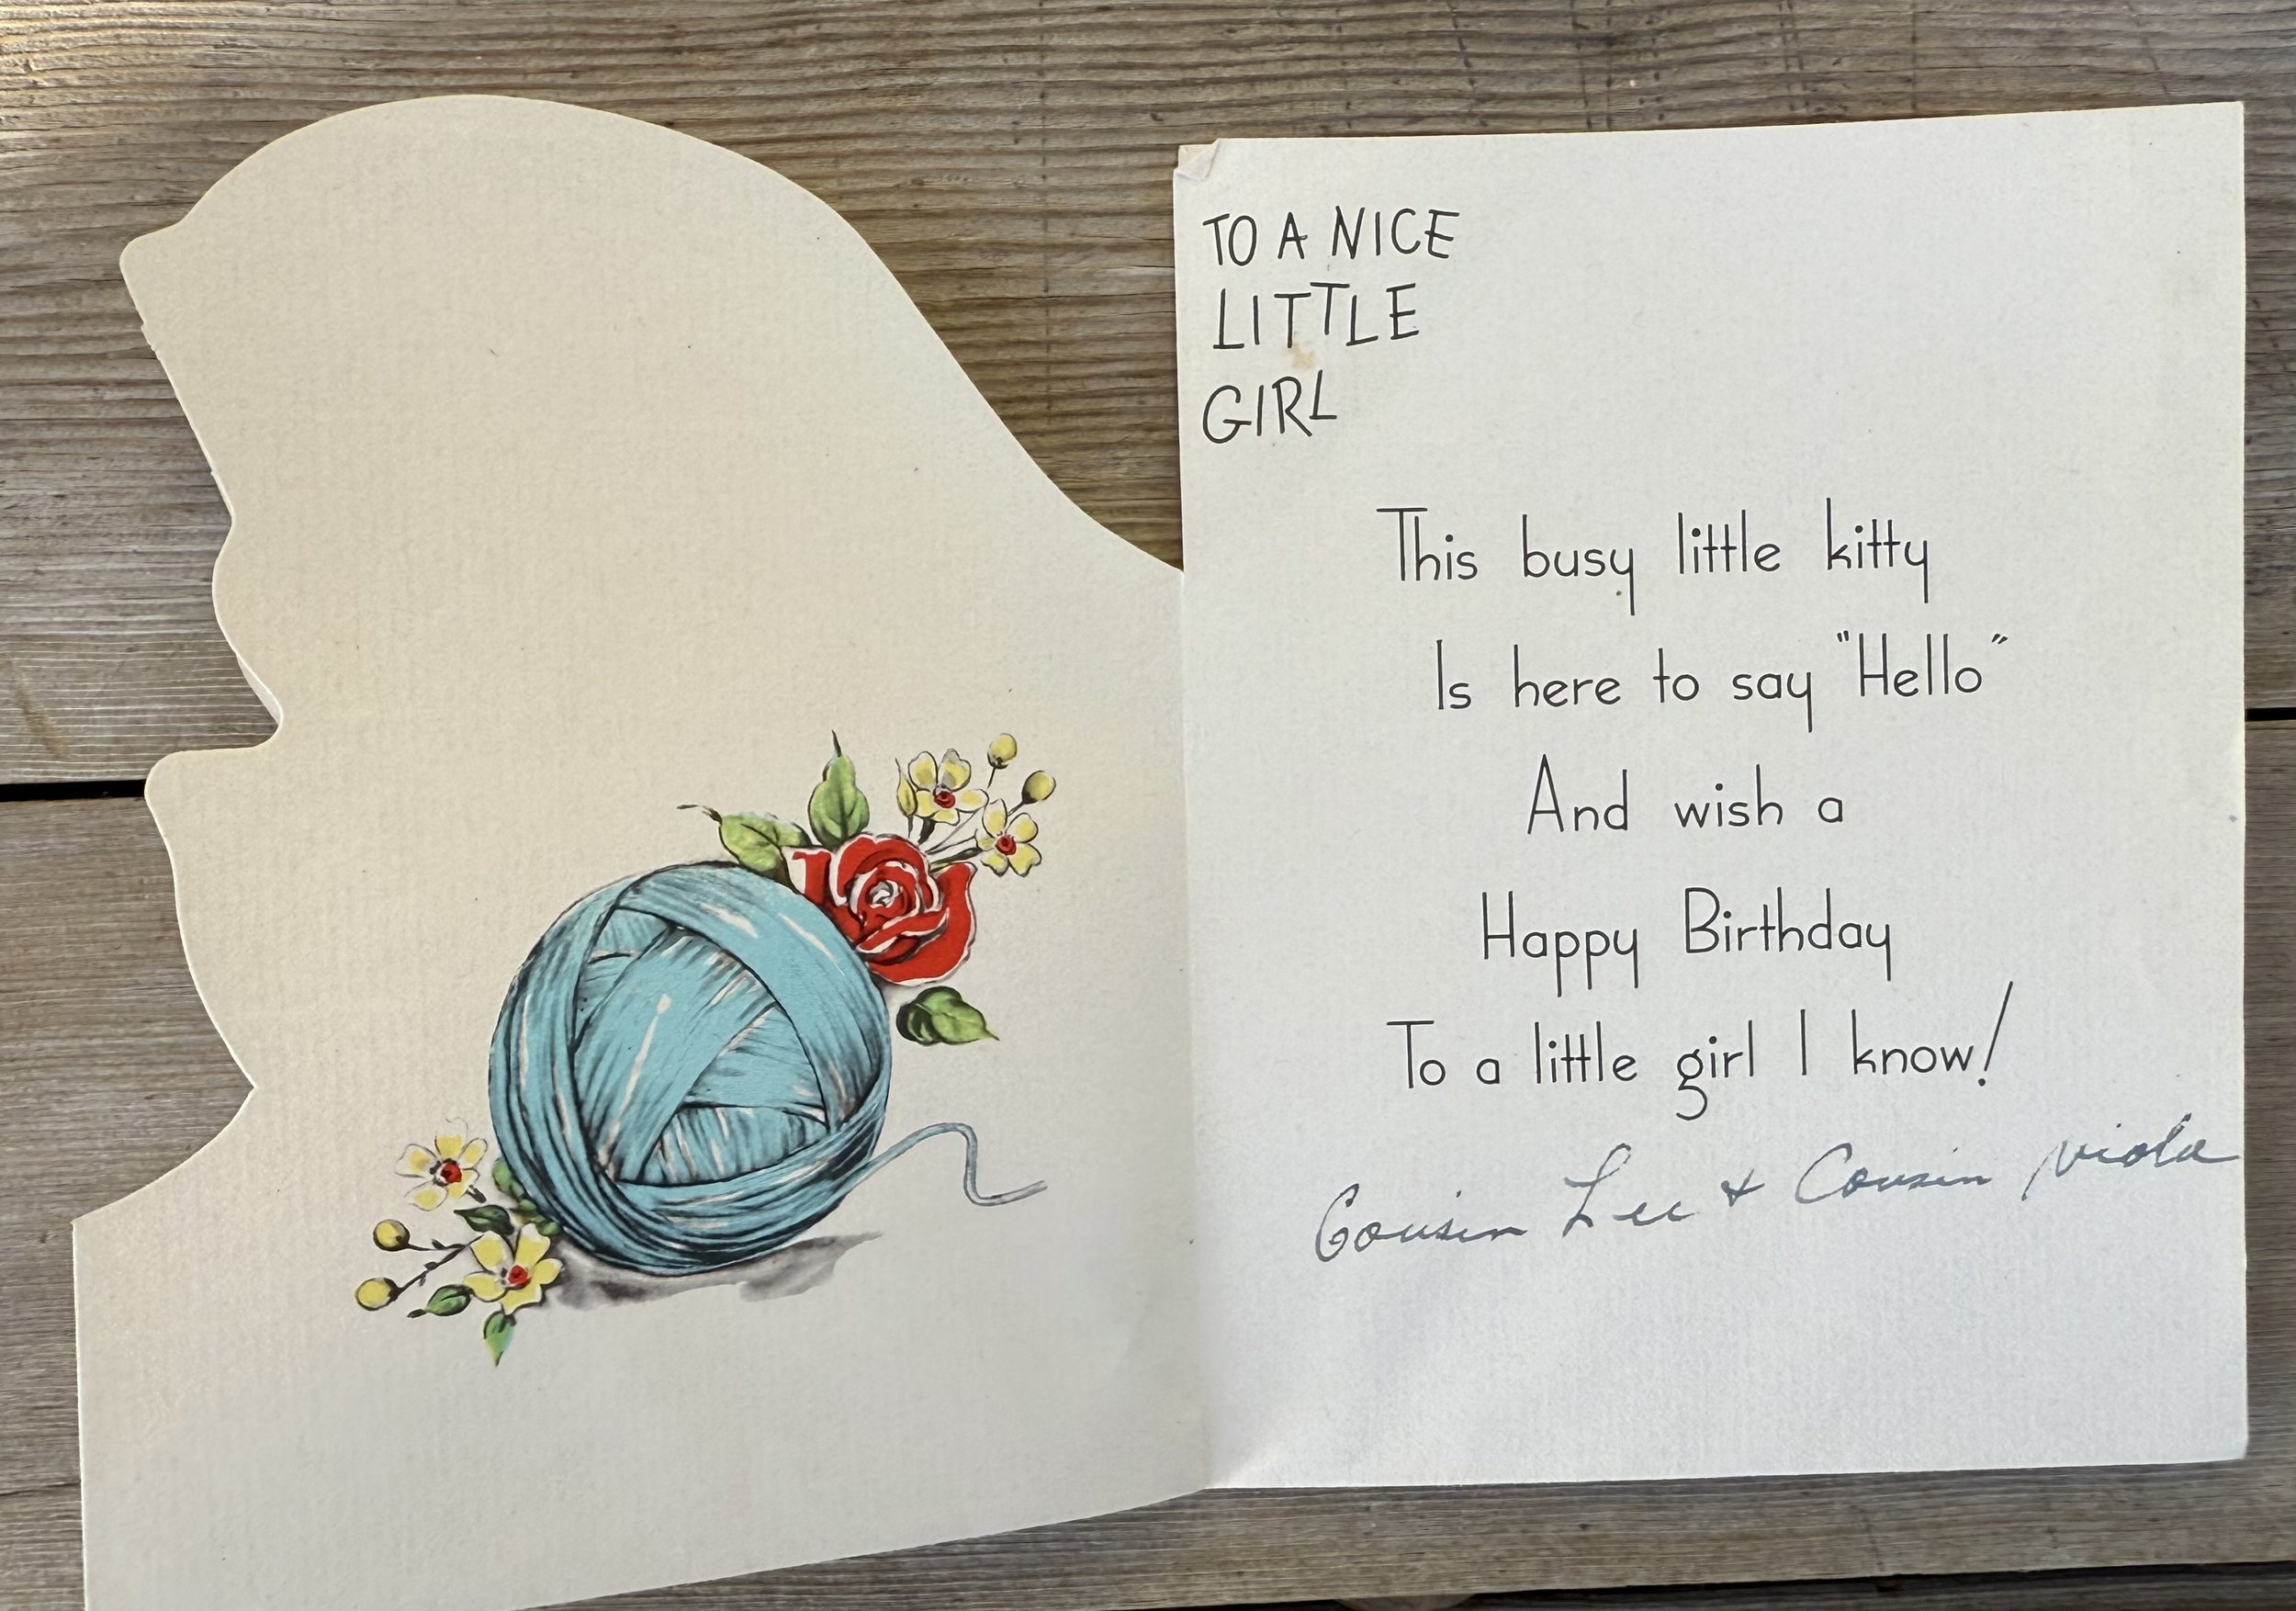 TO A NICE
LITTLE
GIRL
This busy little kitty
Is here to say "Hello"
And wish a
Happy Birthday
To a little girl I know!
Cousin Lee & Cousin Viola